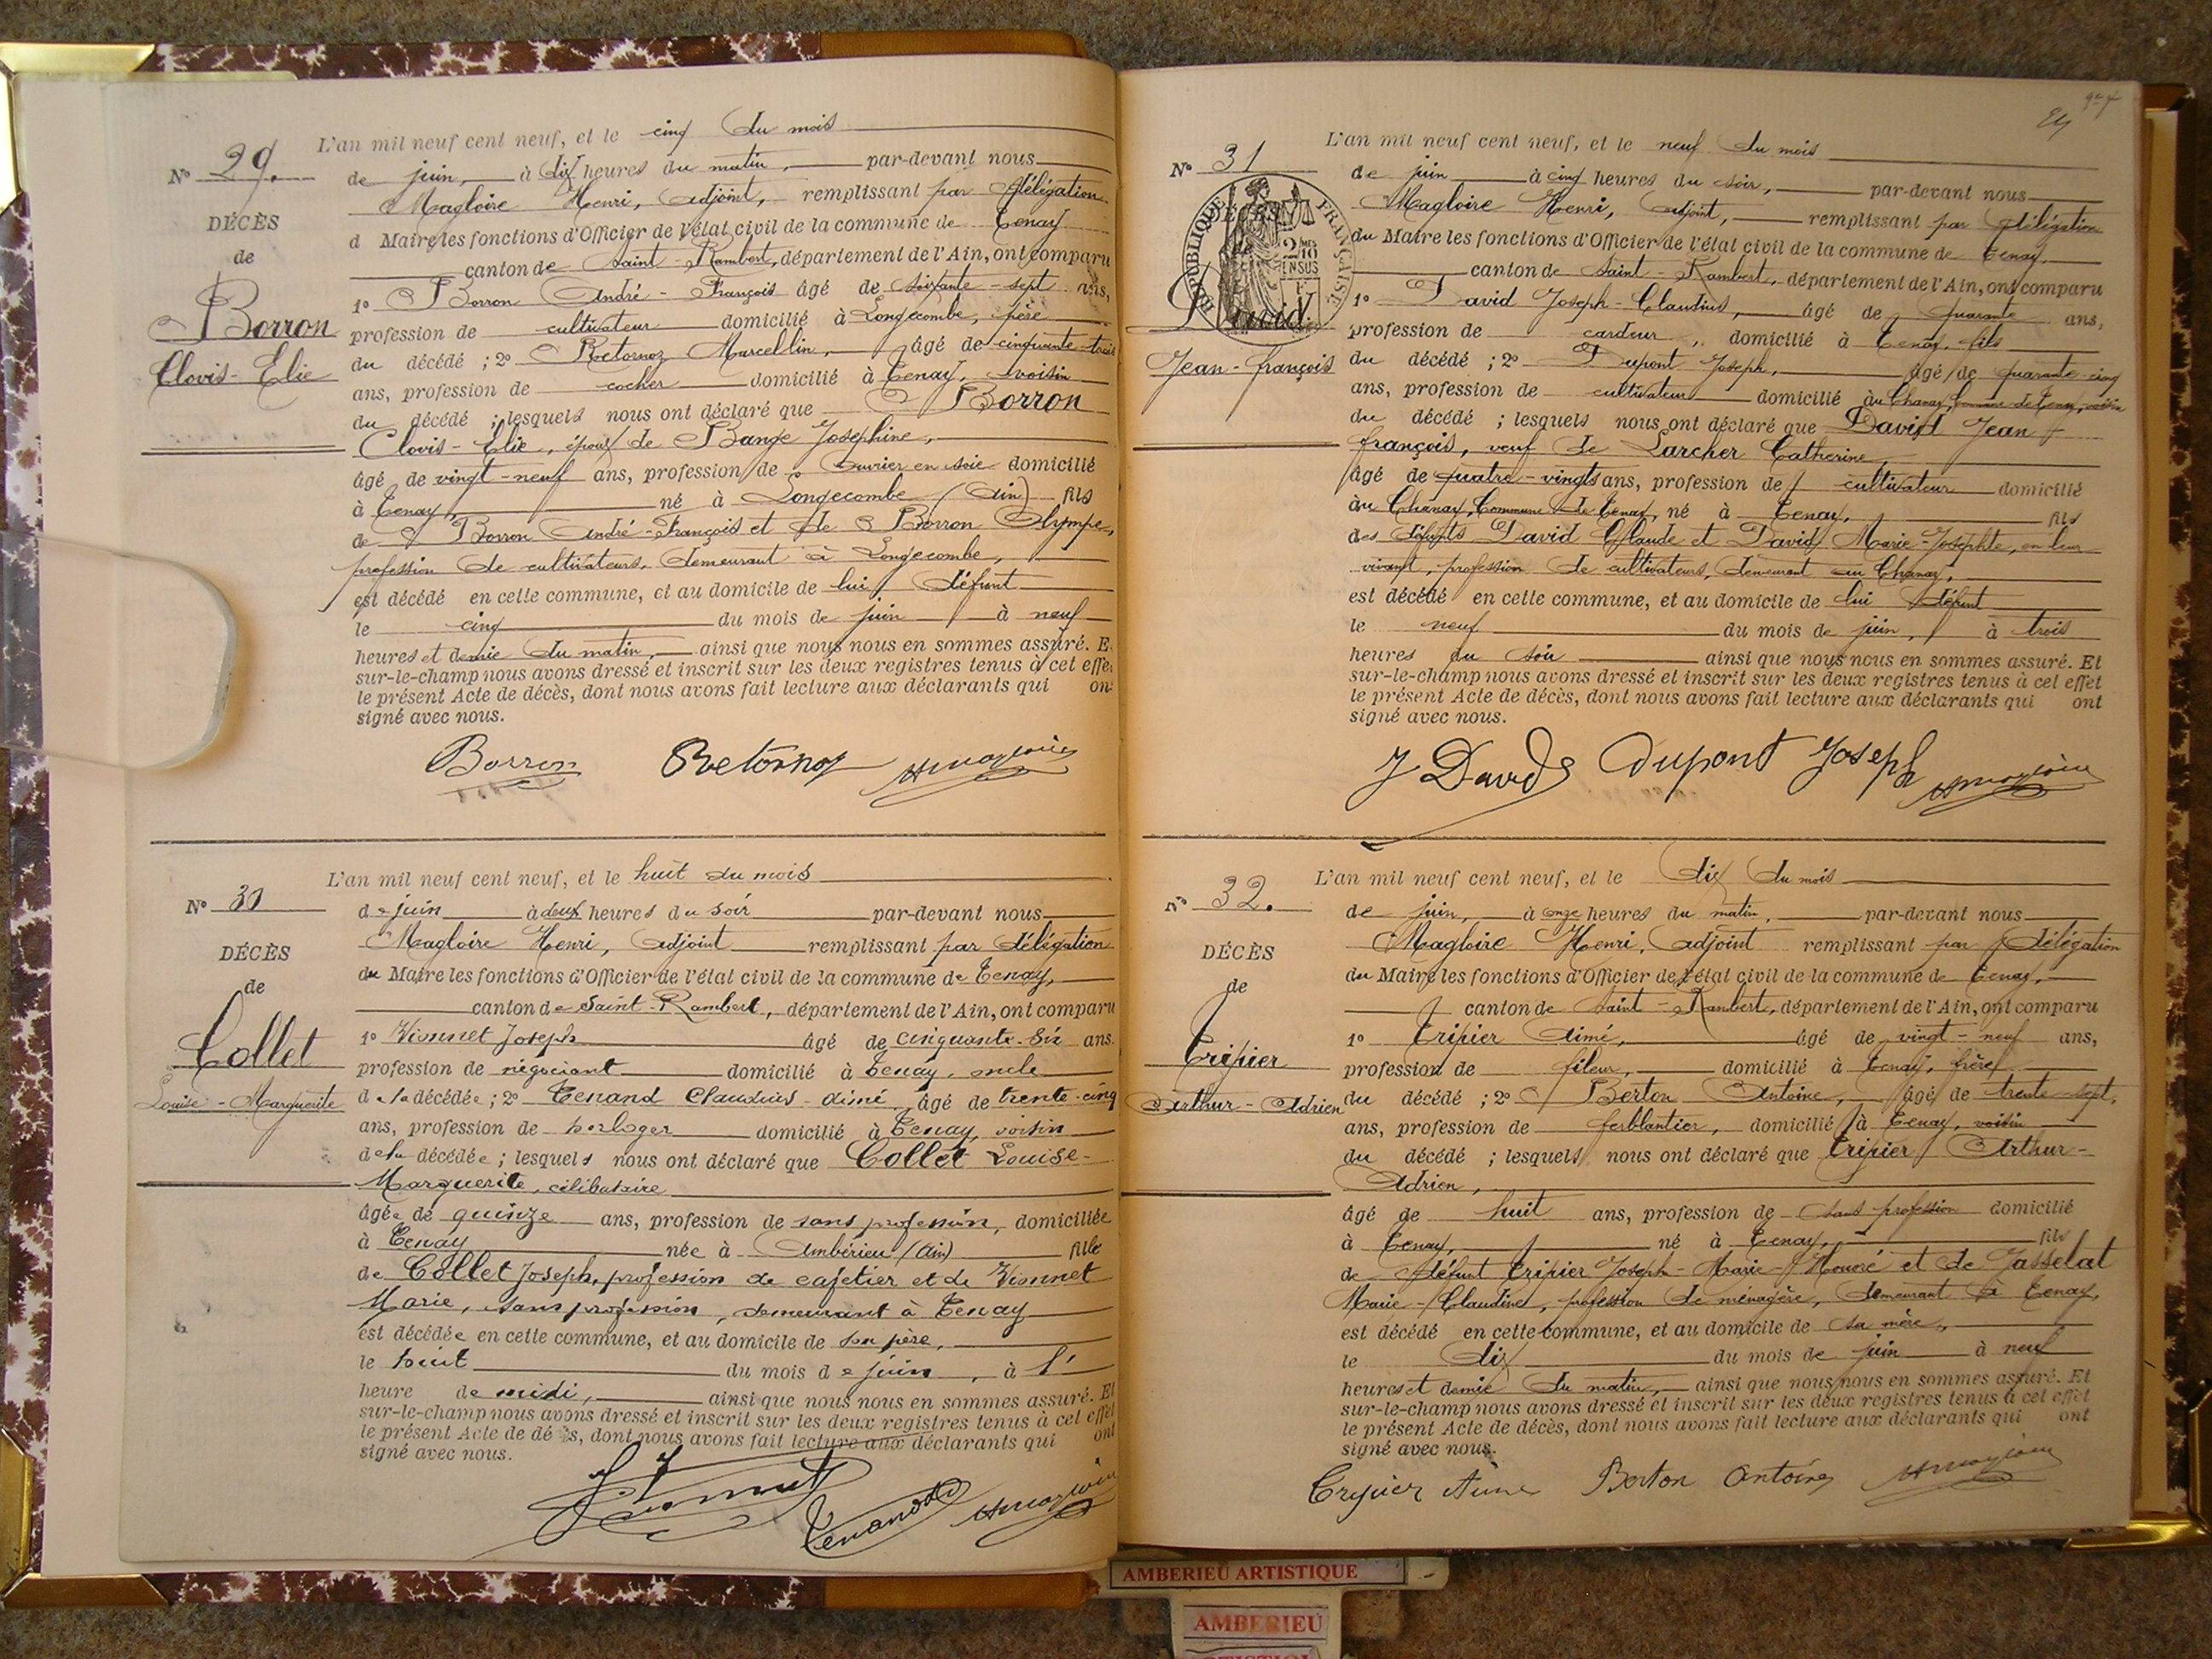 L'an mil neuf cent neuf, et le cinq du mois
N° 29.
de juin, à dix heures du matin, par-devant nous
Magloire Henri, adjoint, remplissant par délégation
DÉCÈS
d Maire les fonctions d'Officier de l'état civil de la commune de Tenay
de
canton de Saint-Rambert, département de l'Ain, ont comparu
Borron
Clovis-Elie
1° Borron André-François âgé de soixante-sept ans,
profession de cultivateur domicilié à Longecombe, père
du décédé ; 2° Retornoz Marcellin, âgé de cinquante-trois
ans, profession de cocher domicilié à Tenay, voisin
du décédé ; lesquels nous ont déclaré que Borron
Clovis-Elie, époux de Bange Josephine,
âgé de vingt-neuf ans, profession de ouvrier en soie domicilié
à Tenay, né à Longecombe (Ain) fils
de Borron André-François et de Borron Olympe,
profession de cultivateurs, demeurant à Longecombe,
est décédé en cette commune, et au domicile de lui défunt
le cinq du mois de juin à neuf
heures et demie du matin, ainsi que nous nous en sommes assuré. E
sur-le-champ nous avons dressé et inscrit sur les deux registres tenus à cet effe
le présent Acte de décès, dont nous avons fait lecture aux déclarants qui on
signé avec nous.
Borron Retornoz HMagloire
L'an mil neuf cent neuf, et le huit du mois
N° 30
de juin à deux heures du soir par-devant nous
Magloire Henri, adjoint remplissant par délégation
DÉCÈS
du Maire les fonctions d'Officier de l'état civil de la commune de Tenay,
de
canton de Saint-Rambert, département de l'Ain, ont comparu
Collet
Louise-Marguerite
1° Vionnet Joseph âgé de cinquante-six ans.
profession de négociant domicilié à Tenay, oncle
de la décédée ; 2° Tenand Claudius-Aimé âgé de trente-cinq
ans, profession de horloger domicilié à Tenay, voisin
de la décédée ; lesquels nous ont déclaré que Collet Louise-
Marguerite, célibataire
âgée de quinze ans, profession de sans profession, domiciliée
à Tenay née à Ambérieu (Ain) fille
de Collet Joseph, profession de cafetier et de Vionnet
Marie, sans profession, demeurant à Tenay
est décédée en cette commune, et au domicile de son père,
le huit du mois de juin, à l'
heure de midi, ainsi que nous nous en sommes assuré. Et
sur-le-champ nous avons dressé et inscrit sur les deux registres tenus à cet effet
le présent Acte de décès, dont nous avons fait lecture aux déclarants qui ont
signé avec nous.
Vionnet Tenand HMagloire
L'an mil neuf cent neuf, et le neuf du mois
N° 31
de juin à cinq heures du soir, par-devant nous
Magloire Henri, adjoint, remplissant par délégation
RÉPUBLIQUE FRANÇAISE
du Maire les fonctions d'Officier de l'état civil de la commune de Tenay.
canton de Saint-Rambert, département de l'Ain, ont comparu
David
Jean-françois
1° David Joseph-Claudius, âgé de quarante ans,
profession de cardeur, domicilié à Tenay, fils
du décédé ; 2° Dupont Joseph, âgé de quarante-cinq
ans, profession de cultivateur domicilié au Chanay, Commune de Tenay, voisin
du décédé ; lesquels nous ont déclaré que David Jean
françois, veuf de Larcher Catherine,
âgé de quatre-vingts ans, profession de cultivateur domicilié
au Chanay, Commune de Tenay, né à Tenay, fils
des défunts David Claude et David Marie-Josephte, en leur
vivant, profession de cultivateurs, demeurant au Chanay,
est décédé en cette commune, et au domicile de lui défunt
le neuf du mois de juin, à trois
heures du soir ainsi que nous nous en sommes assuré. Et
sur-le-champ nous avons dressé et inscrit sur les deux registres tenus à cet effet
le présent Acte de décès, dont nous avons fait lecture aux déclarants qui ont
signé avec nous.
J David Dupont Joseph HMagloire
L'an mil neuf cent neuf, et le dix du mois
N° 32.
de juin, à onze heures du matin, par-devant nous
Magloire Henri, adjoint remplissant par délégation
DÉCÈS
du Maire les fonctions d'Officier de l'état civil de la commune de Tenay,
de
canton de Saint-Rambert, département de l'Ain, ont comparu
Tripier
Arthur-Adrien
1° Tripier Aimé, âgé de vingt-neuf ans,
profession de fileur, domicilié à Tenay, frère
du décédé ; 2° Berton Antoine, âgé de trente-sept,
ans, profession de ferblantier, domicilié à Tenay, voisin
du décédé ; lesquels nous ont déclaré que Tripier Arthur-
Adrien,
âgé de huit ans, profession de sans profession domicilié
à Tenay, né à Tenay, fils
de défunt Tripier Joseph-Marie-Honoré et de Jasselat
Marie-Claudine, profession de ménagère, demeurant à Tenay,
est décédé en cette commune, et au domicile de sa mère,
le dix du mois de juin à neuf
heures et demie du matin, ainsi que nous nous en sommes assuré. Et
sur-le-champ nous avons dressé et inscrit sur les deux registres tenus à cet effet
le présent Acte de décès, dont nous avons fait lecture aux déclarants qui ont
signé avec nous.
Tripier Aimé Berton Antoine HMagloire
AMBERIEU ARTISTIQUE
AMBERIEU